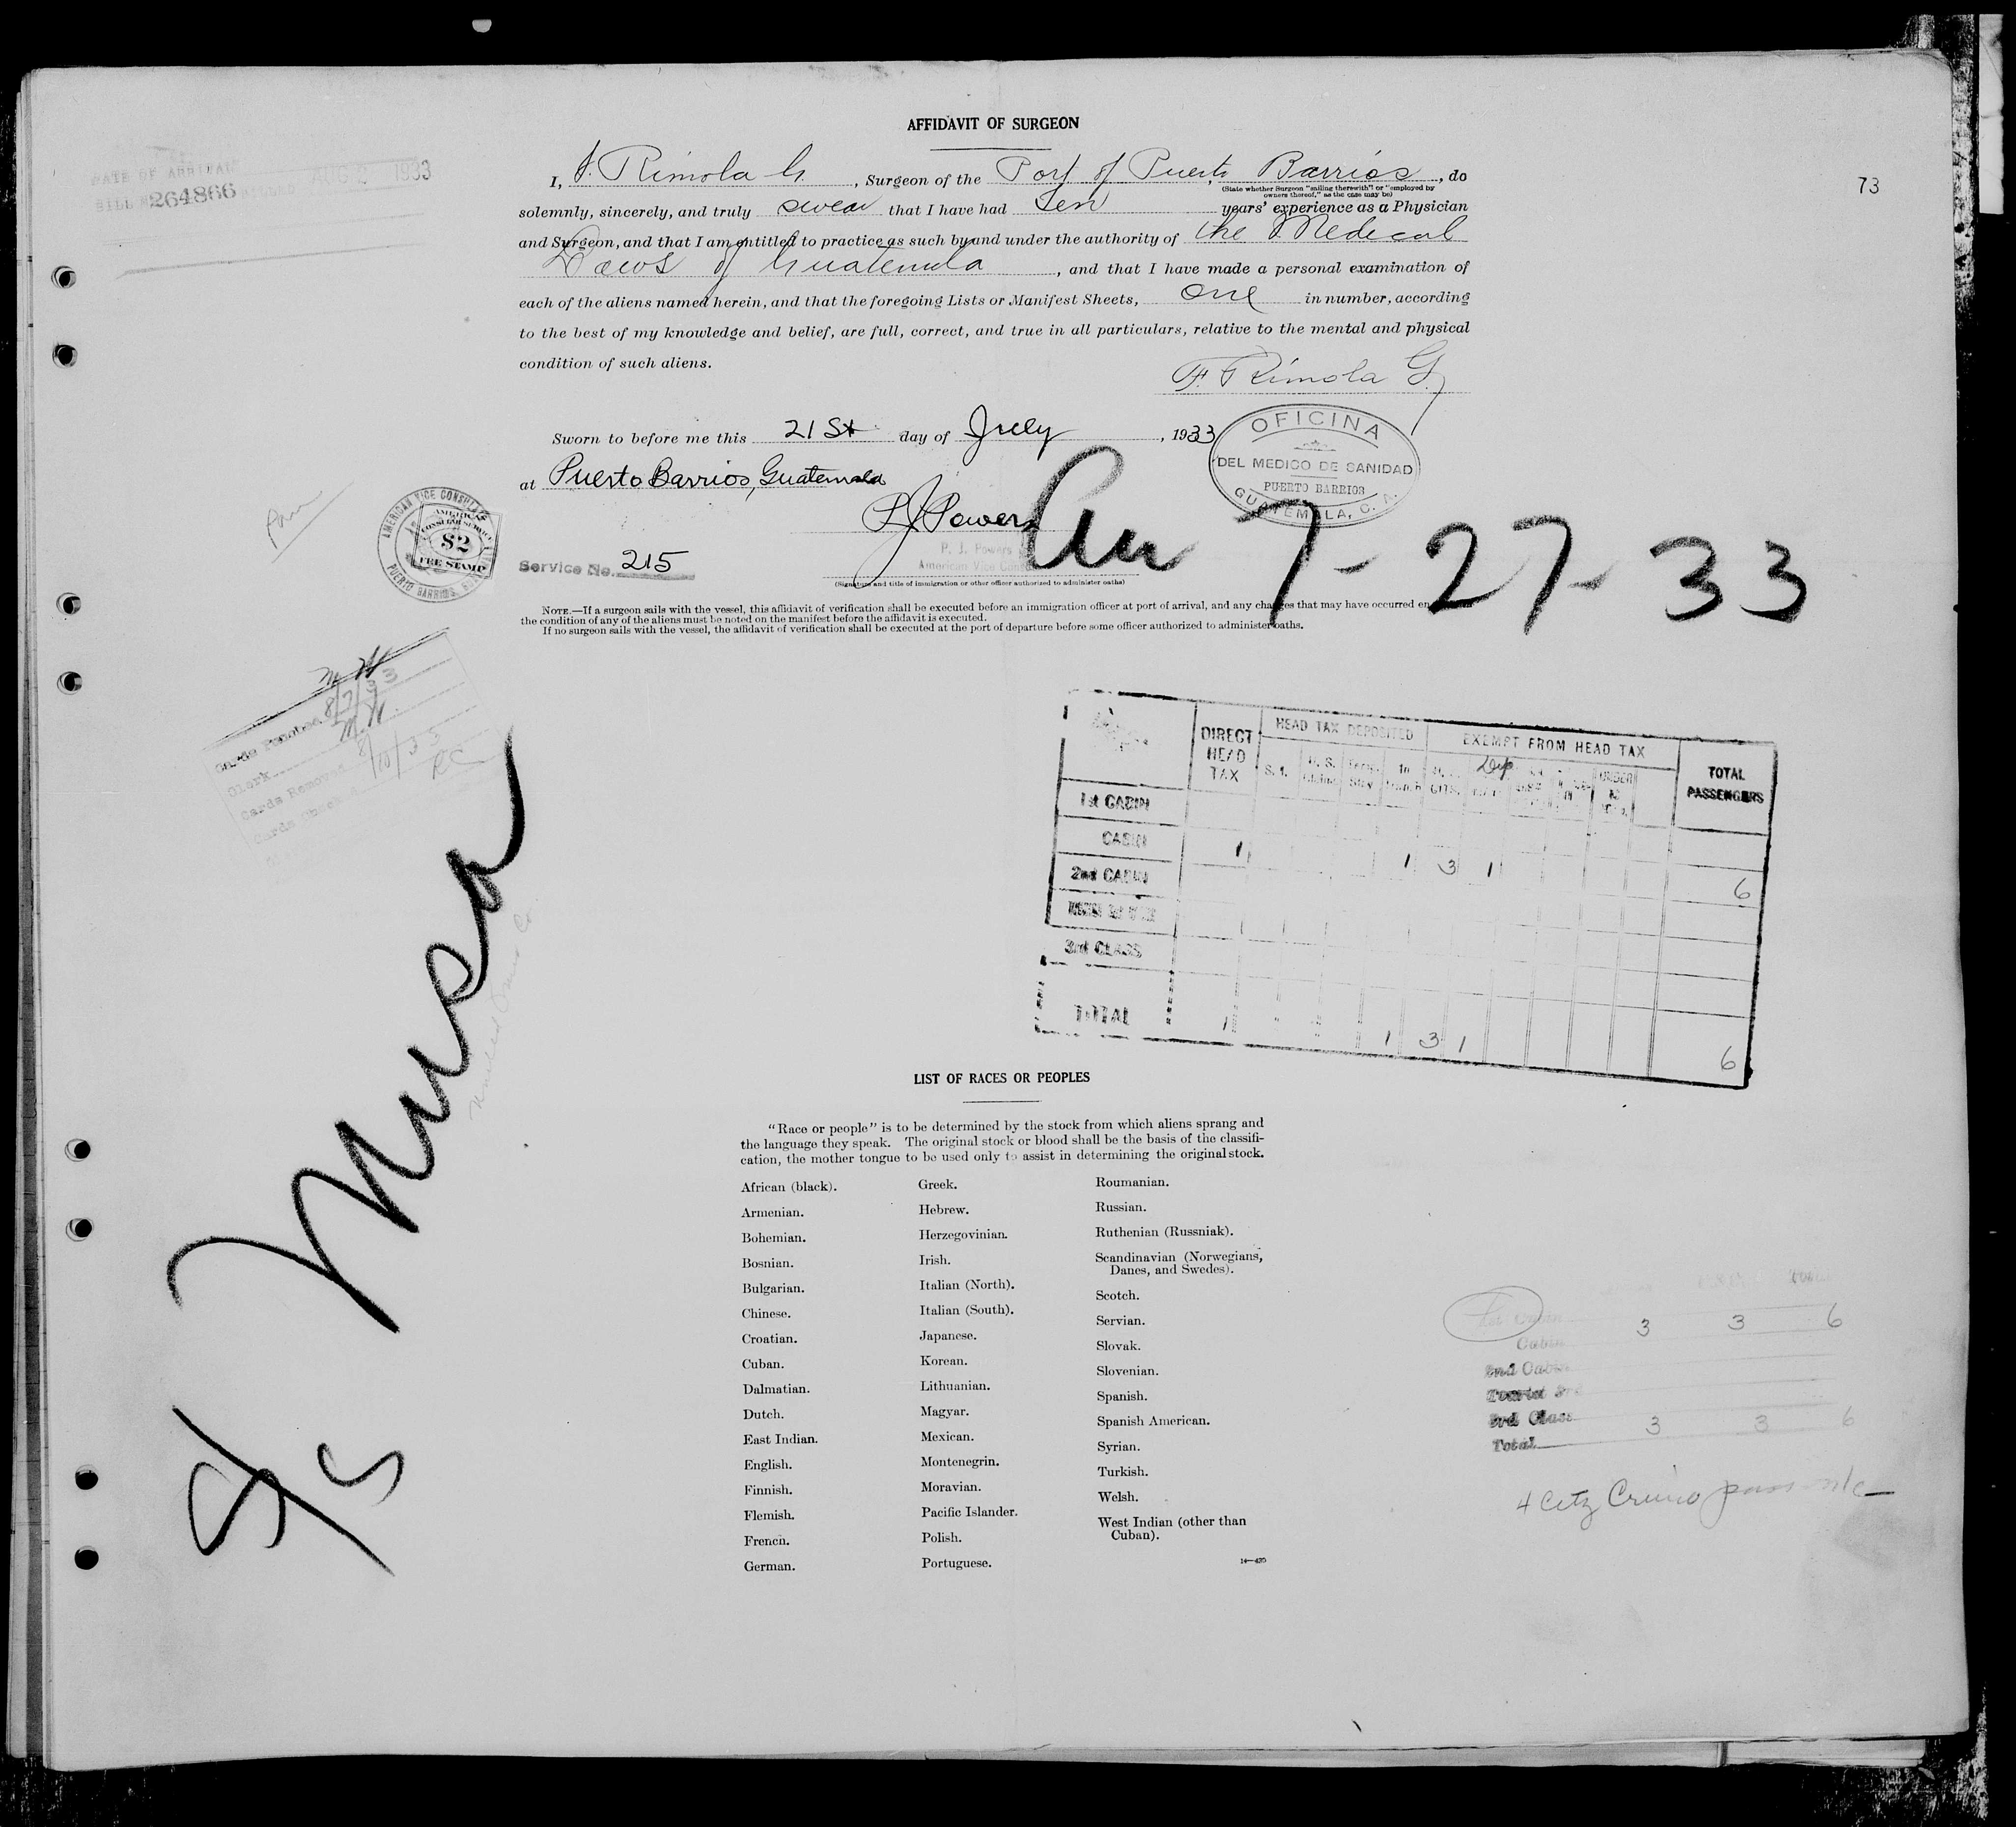 AFFIDAVIT OF SURGEON
I, F. Rimola G., Surgeon of the Port of Puerto Barrios, do
(State whether Surgeon "sailing therewith" or "employed by
owners thereof," as the case may be)
solemnly, sincerely, and truly swear that I have had ten years' experience as a Physician
and Surgeon, and that I am entitled to practice as such by and under the authority of the Medical
Laws of Guatemala, and that I have made a personal examination of
each of the aliens named herein, and that the foregoing Lists or Manifest Sheets, one in number, according
to the best of my knowledge and belief, are full, correct, and true in all particulars, relative to the mental and physical
condition of such aliens.
F. Rimola G.
DATE OF ARRIVAL
BILL 264866 AUG 2 1933
73
Sworn to before me this 21st day of July, 1933
at Puerto Barrios, Guatemala
OFICINA
DEL MEDICO DE SANIDAD
PUERTO BARRIOS
GUATEMALA, C. A.
P J Powers
P. J. Powers
American Vice Consul
(Signature and title of immigration or other officer authorized to administer oaths)
AMERICAN VICE CONSULATE
AMERICAN
CONSULAR SERVICE
$2
FEE STAMP
PUERTO BARRIOS
Service No. 215
7-27-33
NOTE.—If a surgeon sails with the vessel, this affidavit of verification shall be executed before an immigration officer at port of arrival, and any changes that may have occurred en
the condition of any of the aliens must be noted on the manifest before the affidavit is executed.
If no surgeon sails with the vessel, the affidavit of verification shall be executed at the port of departure before some officer authorized to administer oaths.
Cards Punched 8/7/33
Clerk M.H.
Cards Removed 8/10/33
Cards Checked RC
S/S Musa
United Fruit Co
DIRECT HEAD TAX
HEAD TAX DEPOSITED
EXEMPT FROM HEAD TAX
TOTAL PASSENGERS
S. I.
1st CABIN
CABIN 1 1 3 1 6
2nd CABIN
3rd CLASS
TOTAL 1 1 3 1 6
LIST OF RACES OR PEOPLES
"Race or people" is to be determined by the stock from which aliens sprang and
the language they speak. The original stock or blood shall be the basis of the classifi-
cation, the mother tongue to be used only to assist in determining the original stock.
African (black).
Armenian.
Bohemian.
Bosnian.
Bulgarian.
Chinese.
Croatian.
Cuban.
Dalmatian.
Dutch.
East Indian.
English.
Finnish.
Flemish.
French.
German.
Greek.
Hebrew.
Herzegovinian.
Irish.
Italian (North).
Italian (South).
Japanese.
Korean.
Lithuanian.
Magyar.
Mexican.
Montenegrin.
Moravian.
Pacific Islander.
Polish.
Portuguese.
Roumanian.
Russian.
Ruthenian (Russniak).
Scandinavian (Norwegians,
Danes, and Swedes).
Scotch.
Servian.
Slovak.
Slovenian.
Spanish.
Spanish American.
Syrian.
Turkish.
Welsh.
West Indian (other than
Cuban).
14—420
1st Cabin 3 3 6
Cabin
2nd Cabin
Tourist 3rd
3rd Class
Total 3 3 6
4 Citz